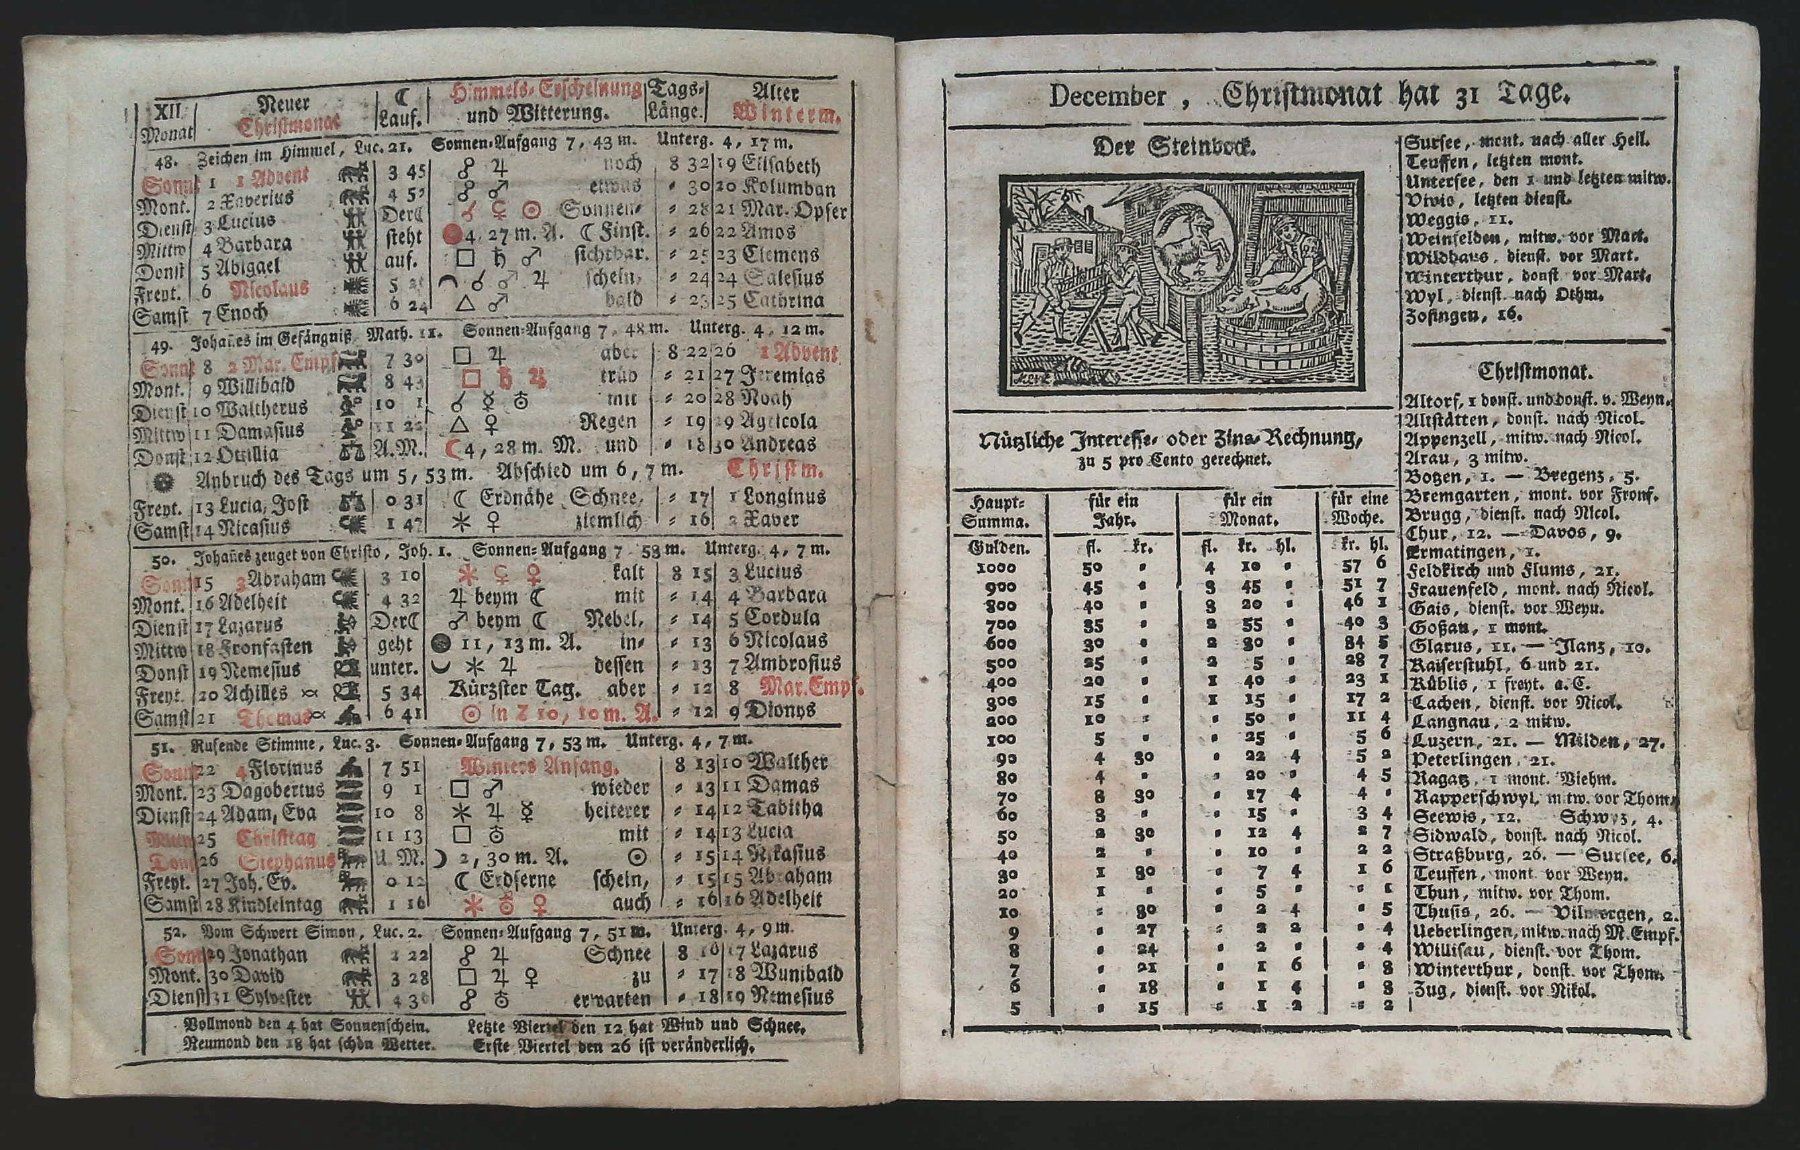 XII. Monat | Neuer Christmonat | ☾ Lauf. | Himmels-Erscheinung und Witterung. | Tags-Länge. | Alter Winterm.
48. Zeichen im Himmel, Luc. 21. Sonnen-Aufgang 7, 43 m. Unterg. 4, 17 m.
Sonnt 1 1 Advent 3 45 ☍ ♃ noch 8 32 19 Elisabeth
Mont. 2 Xaverius 4 5 ☍ ♂ etwas = 30 20 Kolumban
Dienst 3 Lucius Der☾ ☌ ☿ ☉ Sonnen- = 28 21 Mar. Opfer
Mittw 4 Barbara steht 4, 27 m. A. ☾ Finst. = 26 22 Amos
Donst 5 Abigael auf. □ ♄ ♂ sichtbar. = 25 23 Clemens
Freyt. 6 Nicolaus 5 ☌ ♂ ♃ schein, = 24 24 Salesius
Samst 7 Enoch 6 24 △ ♂ bald = 23 25 Cathrina
49. Johañes im Gefängniß, Math. 11. Sonnen-Aufgang 7, 48 m. Unterg. 4, 12 m.
Sonnt 8 2 Mar. Empf. 7 30 □ ♃ aber 8 22 26 1 Advent
Mont. 9 Willibald 8 43 □ ♄ ♃ trüb = 21 27 Jeremias
Dienst 10 Waltherus 10 1 ☌ ☿ ♁ mit = 20 28 Noah
Mittw 11 Damasius 11 22 △ ♀ Regen = 19 29 Agricola
Donst 12 Ottilia A.M. ☾ 4, 28 m. M. und = 18 30 Andreas
Anbruch des Tags um 5, 53 m. Abschied um 6, 7 m. Christm.
Freyt. 13 Lucia, Jost 0 31 ☾ Erdnähe Schnee, = 17 1 Longinus
Samst 14 Nicasius 1 47 ✶ ♀ ziemlich = 16 2 Xaver
50. Johañes zeuget von Christo, Joh. 1. Sonnen-Aufgang 7 53 m. Unterg. 4, 7 m.
Sonnt 15 3 Abraham 3 10 ✶ ☿ ♀ kalt 8 15 3 Lucius
Mont. 16 Adelheit 4 32 ♃ beym ☾ mit = 14 4 Barbara
Dienst 17 Lazarus Der☾ ♂ beym ☾ Nebel, = 14 5 Cordula
Mittw 18 Fronfasten geht ● 11, 13 m. A. in- = 13 6 Nicolaus
Donst 19 Nemesius unter. ✶ ♃ dessen = 13 7 Ambrosius
Freyt. 20 Achilles 5 34 Kürzster Tag. aber = 12 8 Mar. Empf.
Samst 21 Thomas 6 41 ☉ in ♑ 10, 10 m. A. = 12 9 Dionys
51. Rufende Stimme, Luc. 3. Sonnen-Aufgang 7, 53 m. Unterg. 4, 7 m.
Sonnt 22 4 Florinus 7 51 Winters Anfang. 8 13 10 Walther
Mont. 23 Dagobertus 9 1 □ ♂ wieder = 13 11 Damas
Dienst 24 Adam, Eva 10 8 ✶ ♃ ☿ heiterer = 14 12 Tabitha
Mittw 25 Christtag 11 13 □ ♁ mit = 14 13 Lucia
Donst 26 Stephanus U. M. ☽ 2, 30 m. A. ☉ = 15 14 Nikasius
Freyt. 27 Joh. Ev. 0 12 ☾ Erdferne schein, = 15 15 Abraham
Samst 28 Kindleintag 1 16 ✶ ♁ ♀ auch = 16 16 Adelheit
52. Vom Schwert Simon, Luc. 2. Sonnen-Aufgang 7, 51 m. Unterg. 4, 9 m.
Sonnt 29 Jonathan 2 22 ☍ ♃ Schnee 8 16 17 Lazarus
Mont. 30 David 3 28 □ ♃ ♀ zu = 17 18 Wunibald
Dienst 31 Sylvester 4 3 ☍ ♁ erwarten = 18 19 Nemesius
Vollmond den 4 hat Sonnenschein. Letzte Viertel den 12 hat Wind und Schnee.
Neumond den 18 hat schön Wetter. Erste Viertel den 26 ist veränderlich.
December, Christmonat hat 31 Tage.
Der Steinbock.
Nützliche Interesse- oder Zins-Rechnung,
zu 5 pro Cento gerechnet.
Haupt-Summa. | für ein Jahr. | für ein Monat. | für eine Woche.
Gulden. | fl. kr. | fl. kr. hl. | kr. hl.
1000 50 = 4 10 = 57 6
900 45 = 3 45 = 51 7
800 40 = 3 20 = 46 1
700 35 = 2 55 = 40 3
600 30 = 2 30 = 34 5
500 25 = 2 5 = 28 7
400 20 = 1 40 = 23 1
300 15 = 1 15 = 17 2
200 10 = = 50 = 11 4
100 5 = = 25 = 5 6
90 4 30 = 22 4 5 2
80 4 = = 20 = 4 5
70 3 30 = 17 4 4 =
60 3 = = 15 = 3 4
50 2 30 = 12 4 2 7
40 2 = = 10 = 2 2
30 1 30 = 7 4 1 6
20 1 = = 5 = = 1
10 = 30 = 2 4 = 5
9 = 27 = 2 2 = 4
8 = 24 = 2 = = 4
7 = 21 = 1 6 = 3
6 = 18 = 1 4 = 3
5 = 15 = 1 2 = 2
Sursee, mont. nach aller Heil.
Teuffen, letzten mont.
Untersee, den 1 und letzten mitw.
Vivis, letzten dienst.
Weggis, 11.
Weinfelden, mitw. vor Mart.
Wildhaus, dienst. vor Mart.
Winterthur, donst vor Mart.
Wyl, dienst. nach Othm.
Zofingen, 16.
Christmonat.
Altorf, 1 donst. und donst. v. Weyn.
Altstätten, donst. nach Nicol.
Appenzell, mitw. nach Nicol.
Arau, 3 mitw.
Botzen, 1. — Bregenz, 5.
Bremgarten, mont. vor Fronf.
Brugg, dienst. nach Nicol.
Chur, 12. — Davos, 9.
Ermatingen, 1.
Feldkirch und Flums, 21.
Frauenfeld, mont. nach Nicol.
Gais, dienst. vor Weyn.
Goßau, 1 mont.
Glarus, 11. — Ilanz, 10.
Kaiserstuhl, 6 und 21.
Küblis, 1 freyt. a. C.
Lachen, dienst. vor Nicol.
Langnau, 2 mitw.
Luzern, 21. — Milden, 27.
Peterlingen, 21.
Ragatz, 1 mont. Viehm.
Rapperschwyl, mitw. vor Thom.
Seewis, 12. Schwyz, 4.
Sidwald, donst. nach Nicol.
Straßburg, 26. — Sursee, 6.
Teuffen, mont. vor Weyn.
Thun, mitw. vor Thom.
Thusis, 26. — Vilmergen, 2.
Ueberlingen, mitw. nach M. Empf.
Willisau, dienst. vor Thom.
Winterthur, donst. vor Thom.
Zug, dienst. vor Nikol.